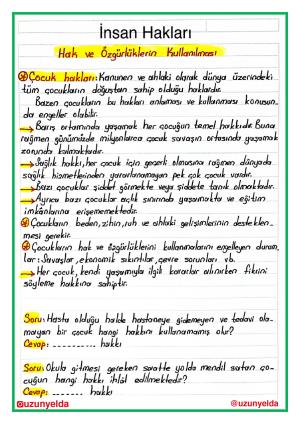 İnsan Hakları
Hak ve Özgürlüklerin Kullanılması
Çocuk hakları: Kanunen ve ahlaki olarak dünya üzerindeki
tüm çocukların doğuştan sahip olduğu haklardır.
Bazen çocukların bu hakları anlaması ve kullanması konusun-
da engeller olabilir.
→ Barış ortamında yaşamak her çocuğun temel hakkıdır. Buna
rağmen günümüzde milyonlarca çocuk savaşın ortasında yaşamak
zorunda kalmaktadır.
→ Sağlık hakkı, her çocuk için geçerli olmasına rağmen dünyada
sağlık hizmetlerinden yararlanamayan pek çok çocuk vardır.
→ Bazı çocuklar şiddet görmekte veya şiddete tanık olmaktadır.
→ Ayrıca bazı çocuklar açlık sınırında yaşamakta ve eğitim
imkânlarına erişememektedir.
Çocukların beden, zihin, ruh ve ahlaki gelişimlerinin desteklen-
mesi gerekir.
Çocukların hak ve özgürlüklerini kullanmalarını engelleyen durum-
lar: Savaşlar, ekonomik sıkıntılar, çevre sorunları vb.
→ Her çocuk, kendi yaşamıyla ilgili kararlar alınırken fikrini
söyleme hakkına sahiptir.
Soru: Hasta olduğu halde hastaneye gidemeyen ve tedavi ola-
mayan bir çocuk hangi hakkını kullanamamış olur?
Cevap: ......... hakkı
Soru: Okula gitmesi gereken saatte yolda mendil satan ço-
cuğun hangi hakkı ihlâl edilmektedir?
Cevap: ......... hakkı
@uzunyelda @uzunyelda